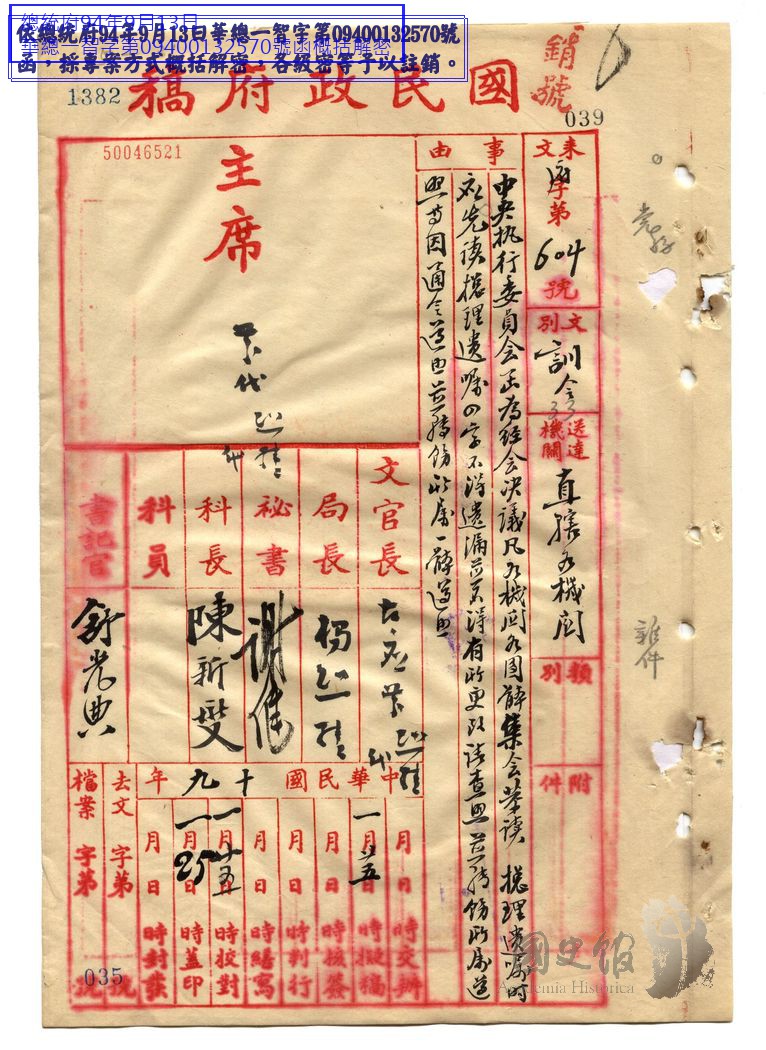 總統府94年9月13日
華總一智字第09400132570號函概括解密
依總統府94年9月13日華總一智字第09400132570號
函，採專案方式概括解密，各級密等予以註銷。
銷號
1382
國民政府稿
039
50046521
來文
字第604號
文別
訓令
33
送達機關
直轄各機關
類別
附件
事由
中央執行委員會函為經會決議凡各機關各團體集會恭讀總理遺囑時
應先讀總理遺囑四字不得遺漏並不得有所更改請查照並轉飭所屬遵
照等因通令遵照並轉飭所屬一體遵照
主席
代
文官長
古應芬
代
局長
楊熙績
秘書
謝健
科長
陳新燮
科員
書記官
舒光典
中華民國十九年
月日時交辦
一月廿五日時擬稿
月日時核簽
月日時判行
月日時繕寫
一月廿五日時校對
一月25日時蓋印
月日時封發
去文字第號
檔案字第號
035
雜件
國史館
Academia Historica